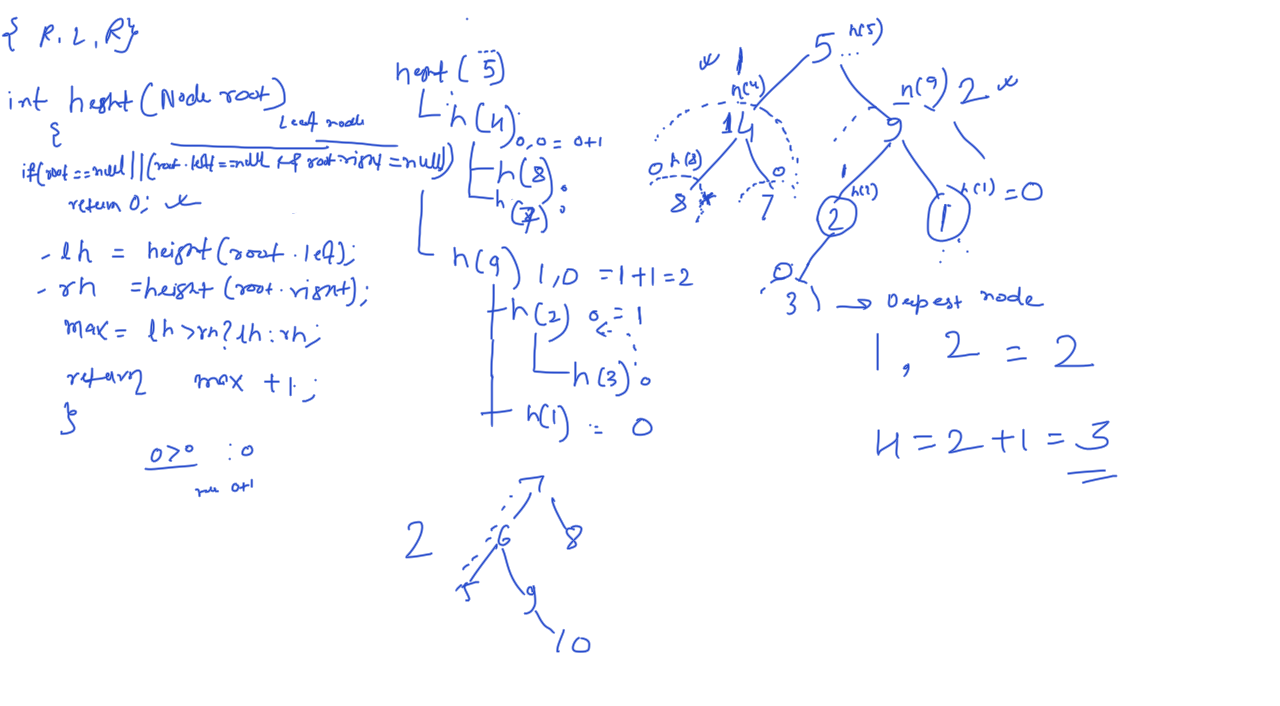 { R, L, R}
int height(Node root)
Leaf node
{
if(root==null||(root.left==null && root.right=null)
return 0;
- lh = height(root.left);
- rh =height(root.right);
max= lh>rh?lh:rh;
return max +1;
}
0>0 :0
0+1
height(5)
h(4) 0,0 = 0+1
h(8) 0
h(7) 0
h(9) 1,0 =1+1=2
h(2) 0 =1
h(3) 0
h(1) = 0
5 h(5)
1
h(4)
14
h(9) 2
9
0 h(8)
0
8
7
1
h(2)
2
h(1) =0
1
0
3 → Deepest node
1, 2 = 2
H=2+1=3
7
2
6
8
5
9
10